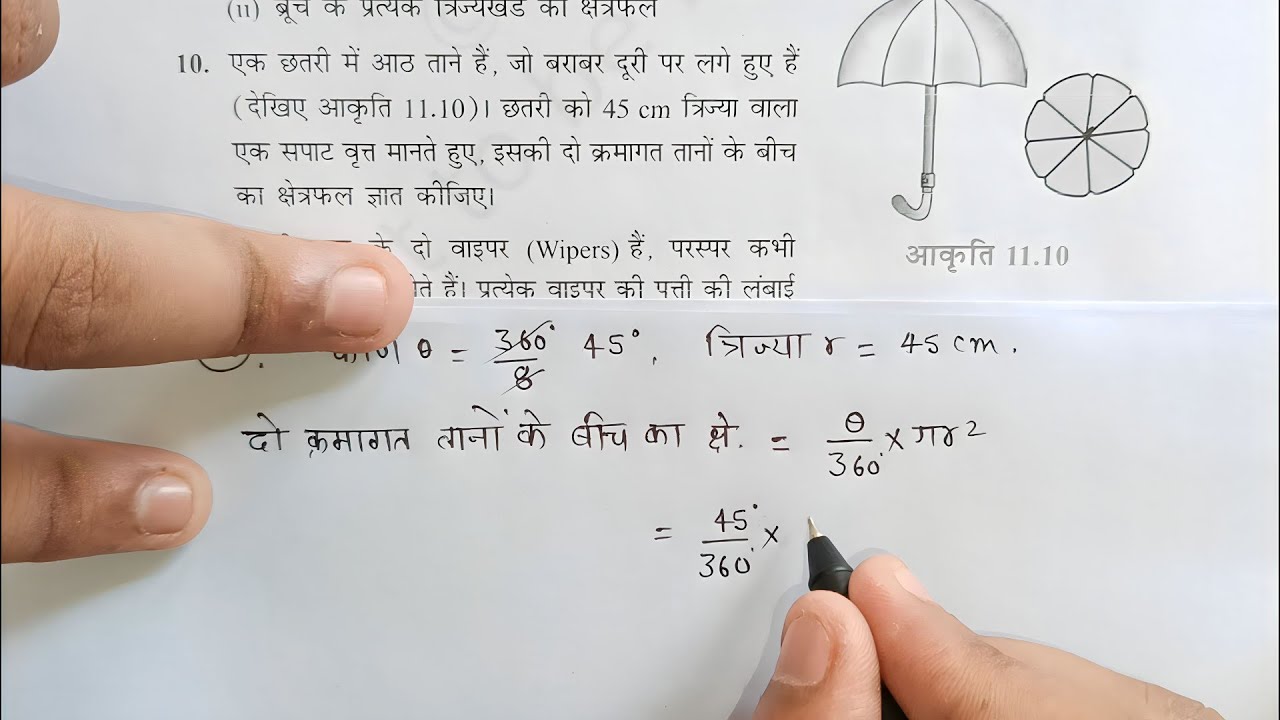 (ii) ब्रूच के प्रत्येक त्रिज्यखंड का क्षेत्रफल
10. एक छतरी में आठ ताने हैं, जो बराबर दूरी पर लगे हुए हैं
(देखिए आकृति 11.10)। छतरी को 45 cm त्रिज्या वाला
एक सपाट वृत्त मानते हुए, इसकी दो क्रमागत तानों के बीच
का क्षेत्रफल ज्ञात कीजिए।
के दो वाइपर (Wipers) हैं, परस्पर कभी
होते हैं। प्रत्येक वाइपर की पत्ती की लंबाई
आकृति 11.10
कोण θ = 360°/8 45°, त्रिज्या r = 45 cm.
दो क्रमागत तानों के बीच का क्षे. = θ/360° × πr²
= 45°/360° ×